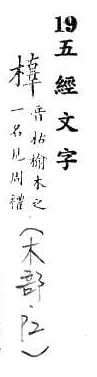 19五經文字
橭音枯榆木之
一名見周禮(木部.P2)